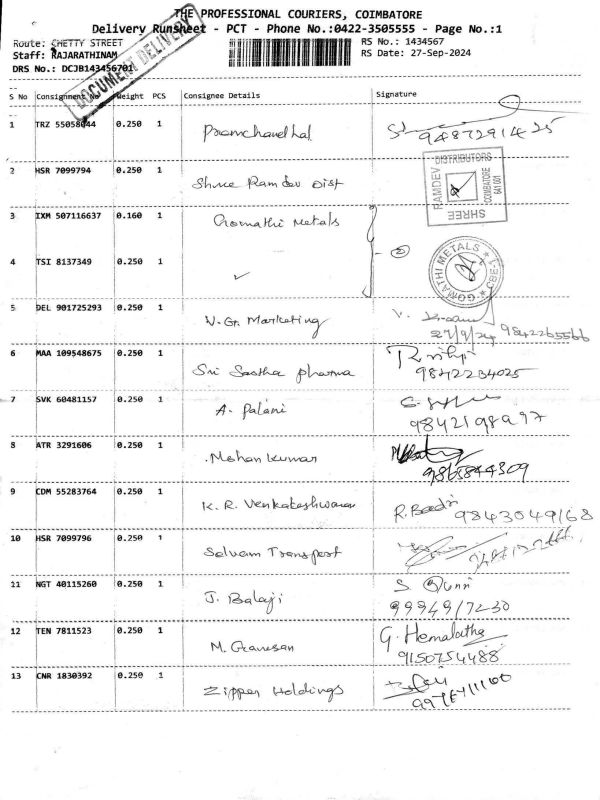 THE PROFESSIONAL COURIERS, COIMBATORE
Delivery Runsheet - PCT - Phone No.:0422-3505555 - Page No.:1
Route: CHETTY STREET
RS No.: 1434567
Staff: RAJARATHINAM
RS Date: 27-Sep-2024
DRS No.: DCJB143456701
DOCUMENT DELIVERY
S No Consignment No Weight PCS Consignee Details Signature
1 TRZ 55058044 0.250 1 Premchand lal
9487291425
2 HSR 7099794 0.250 1 Shree Ramdev Dist
RAMDEV DISTRIBUTORS COIMBATORE 641 001 SHREE
3 IXM 507116637 0.160 1 Gomathi Metals
4 TSI 8137349 0.250 1 ✓ 2
GOMATHI METALS ★ CBE-1 ★
5 DEL 901725293 0.250 1 V. Gr. Marketing V.
27/9/24 9842265566
6 MAA 109548675 0.250 1 Sri Sastha pharma
9842234025
7 SVK 60481157 0.250 1 A. Palani
9842198997
8 ATR 3291606 0.250 1 Mohan kumar
9865844309
9 CDM 55283764 0.250 1 K. R. Venkateshwaran R. Badri
9843049168
10 HSR 7099796 0.250 1 Selvam Transport
11 NGT 40115260 0.250 1 J. Balaji S.
9994917230
12 TEN 7811523 0.250 1 M. Ganesan G. Hemalatha
9150754488
13 CNR 1830392 0.250 1 Zipper Holdings